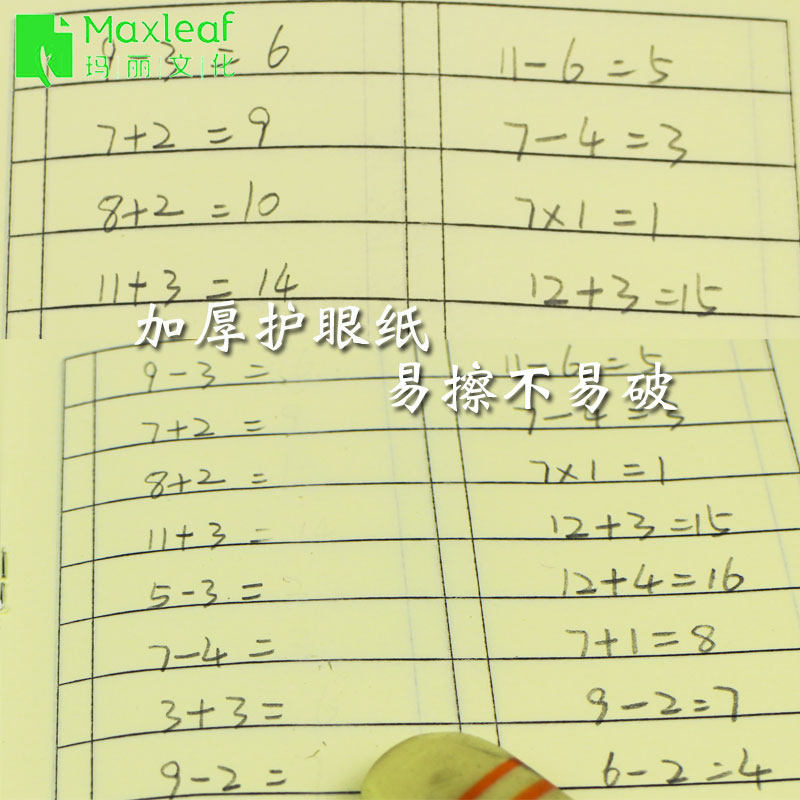 Maxleaf
玛丽文化
9-3=6 11-6=5
7+2=9 7-4=3
8+2=10 7×1=1
11+3=14 12+3=15
加厚护眼纸
易擦不易破
9-3= 11-6=5
7+2= 7-4=3
8+2= 7×1=1
11+3= 12+3=15
5-3= 12+4=16
7-4= 7+1=8
3+3= 9-2=7
9-2= 6-2=4